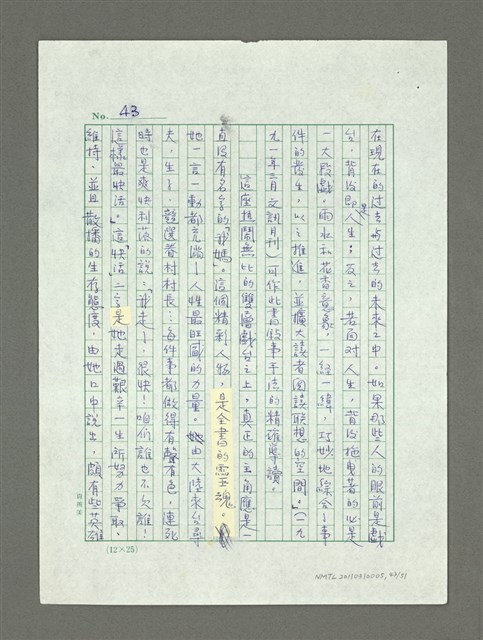 No. 43
在現在的过去与过去的未來之中。如果那些人的眼前是戲
台，背後即是人生；反之，若面对人生，背後拖曳著的必是
一大段戲。雨水和花香意象，一經一緯，巧妙地綜合了事
件的發生，以之推進，並擴大讀者閱讀联想的空間。」（一九
九一年三月文訊月刊）可作此書敘事手法的精確導讀。
這座熱鬧無比的雙層戲台之上，真正的主角應是一
直沒有名字的「我媽」。這個精彩人物，是全書的灵魂。
她一言一動都充滿了人性最旺盛的力量。她由大陸來台尋
夫，生了，競選眷村村長…每件事都做得有聲有色，連死
時也是爽快利落的說：「我走了，很快！咱们誰也不欠誰！
這樣最快活。」這「快活」二字是她走過艱辛一生所努力爭取，
維持，並且散播的生存態度，由她口中說出，頗有些英雄
(12×25)
NMTL 20110310005, 43/51